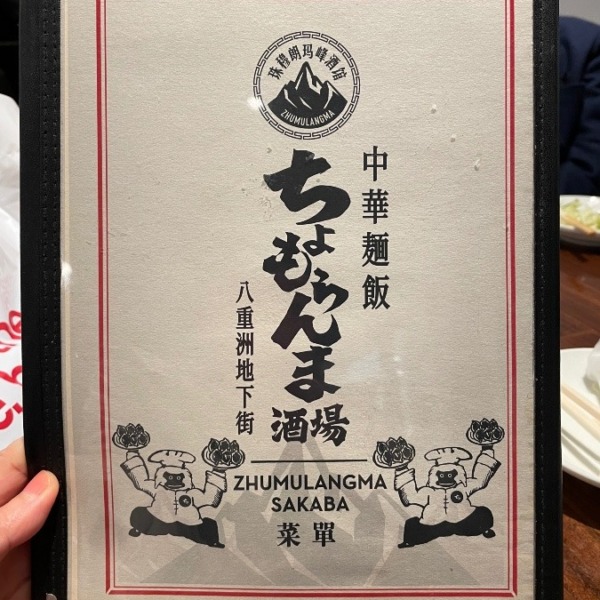 珠穆朗玛峰酒馆
ZHUMULANGMA
中華麺飯
ちょもらんま
酒場
八重洲地下街
ZHUMULANGMA
SAKABA
菜單